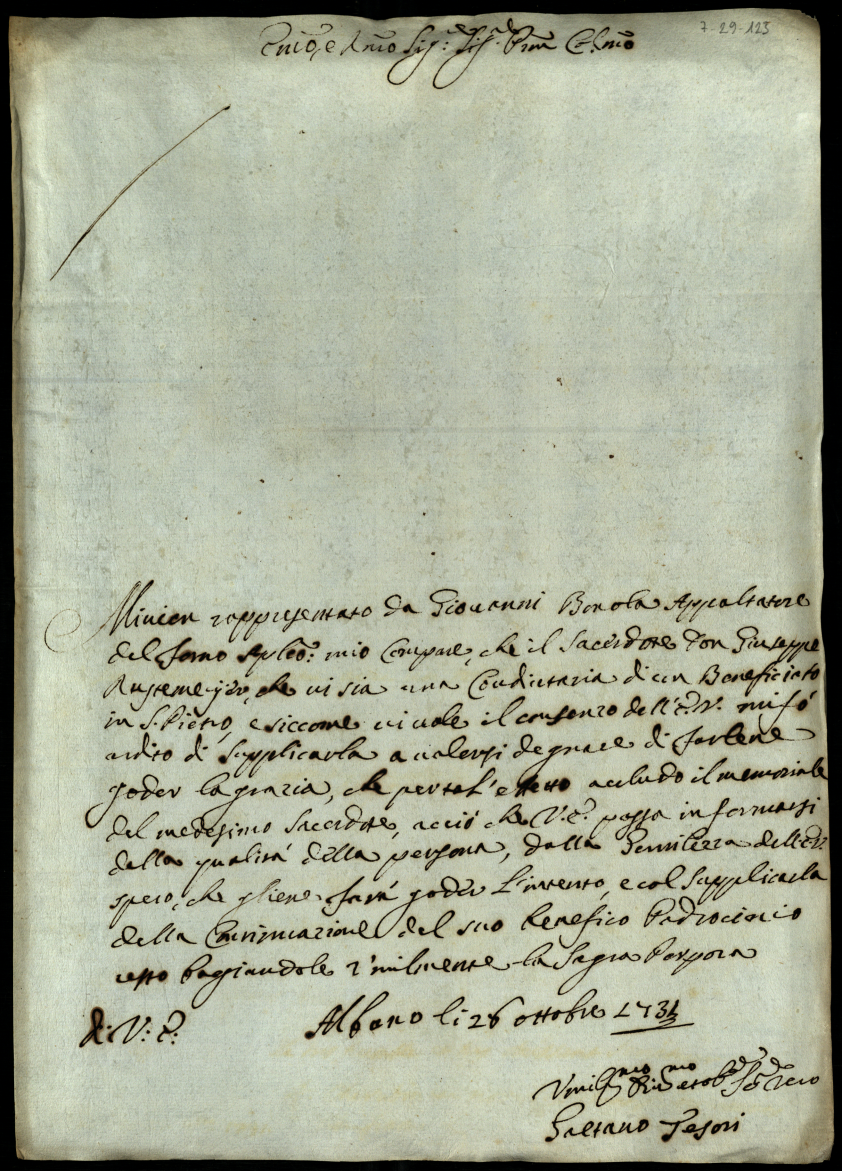 7-29-123
Em̃o, e Rm̃o Sig.r Sig.r Pron Col.mo
Mi vien rappresentato da Giovanni Bonola Appaltatore
del forno Aplico: mio Compare, che il Sacerdote Don Giuseppe
che vi sia una Coadiutaria di un Beneficiato
in S. Pietro, e siccome vi vuole il consenso dell'E. V. mi fò
ardito di supplicarla a valersi degnare di farlene
goder la grazia, che per tal'effetto accludo il memoriale
del medesimo Sacerdote, acciò che V. E. possa informarsi
della qualità della persona, dalla Gentilezza dell'E. V.
spero, che gliene farà goder l'intento, e col supplicarla
della Continuazione del suo benefico Padrocinio
resto bagiandole umilmente la Sagra Porpora
di V: E:
Albano li 26 ottobre 1731
Umil.mo Di.mo et ob.
Gaetano Tesori